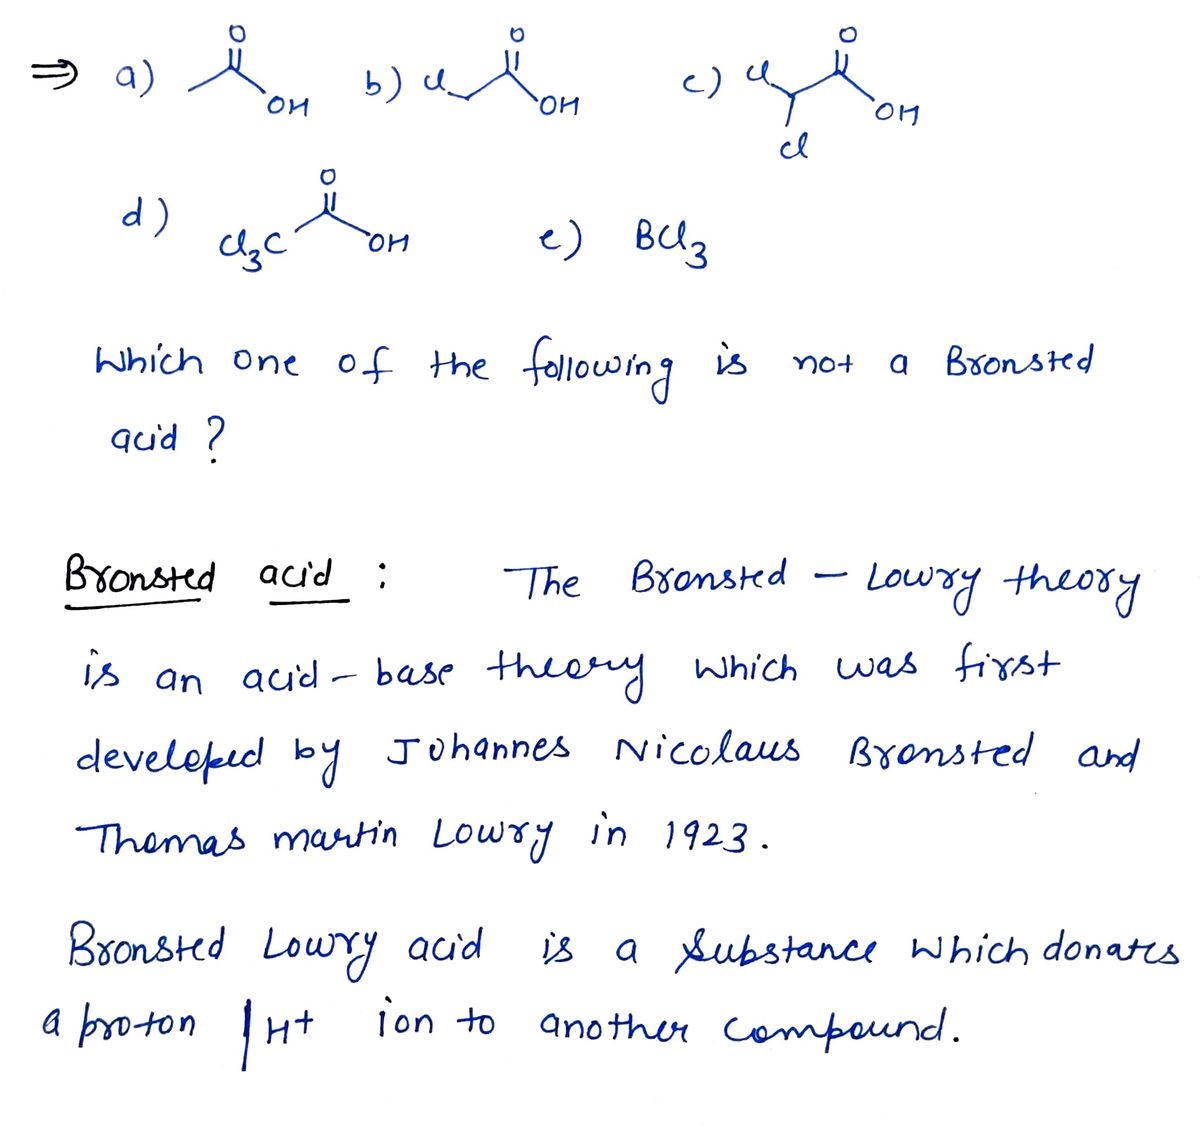 ⇒ a) O OH b) Cl O OH c) Cl O OH Cl
d) Cl₃C O OH e) BCl₃
Which one of the following is not a Bronsted
acid ?
Bronsted acid : The Bronsted - Lowry theory
is an acid - base theory which was first
developed by Johannes Nicolaus Bronsted and
Thomas martin Lowry in 1923.
Bronsted Lowry acid is a substance which donates
a proton / H+ ion to another compound.